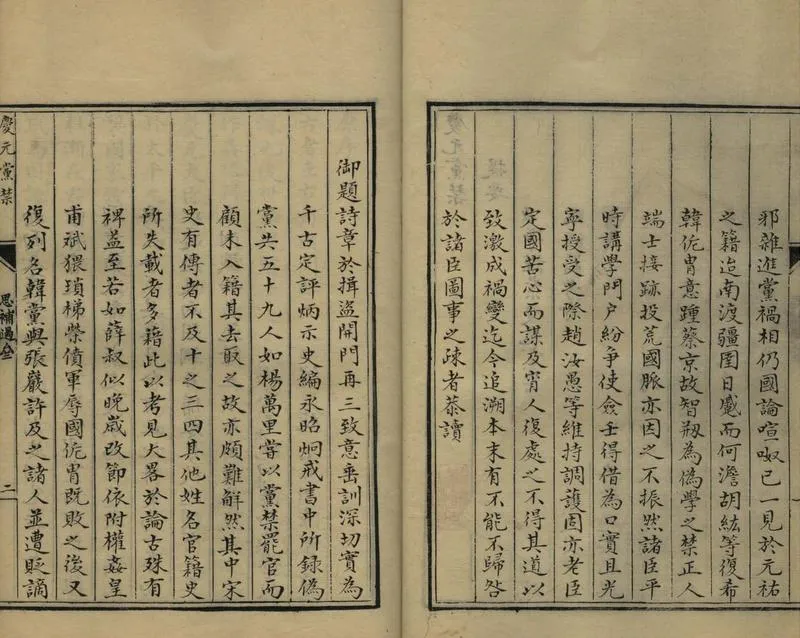 邪雜進黨禍相仍國論喧呶已一見於元祐
之籍迨南渡疆圉日蹙而何澹胡紘等復希
韓侂胄意踵蔡京故智剏為偽學之禁正人
端士接跡投荒國脈亦因之不振然諸臣平
時講學門戶紛爭使僉壬得借為口實且光
寧授受之際趙汝愚等維持調護固亦老臣
定國苦心而謀及宵人復處之不得其道以
致激成禍變迄今追溯本末有不能不歸咎
於諸臣圖事之疎者恭讀
御題詩章於揖盜開門再三致意垂訓深切實為
千古定評炳示史編永昭炯戒書中所錄偽
黨共五十九人如楊萬里嘗以黨禁罷官而
顧未入籍其去取之故亦頗難解然其中宋
史有傳者不及十之三四其他姓名官籍史
所失載者多藉此以考見大畧於論古殊有
裨益至若如薛叔似晚歲改節依附權姦皇
甫斌猥瑣梯榮僨軍辱國侂胄既敗之後又
復列名韓黨與張巖許及之諸人並遭貶謫
慶元黨禁
思補過全
二